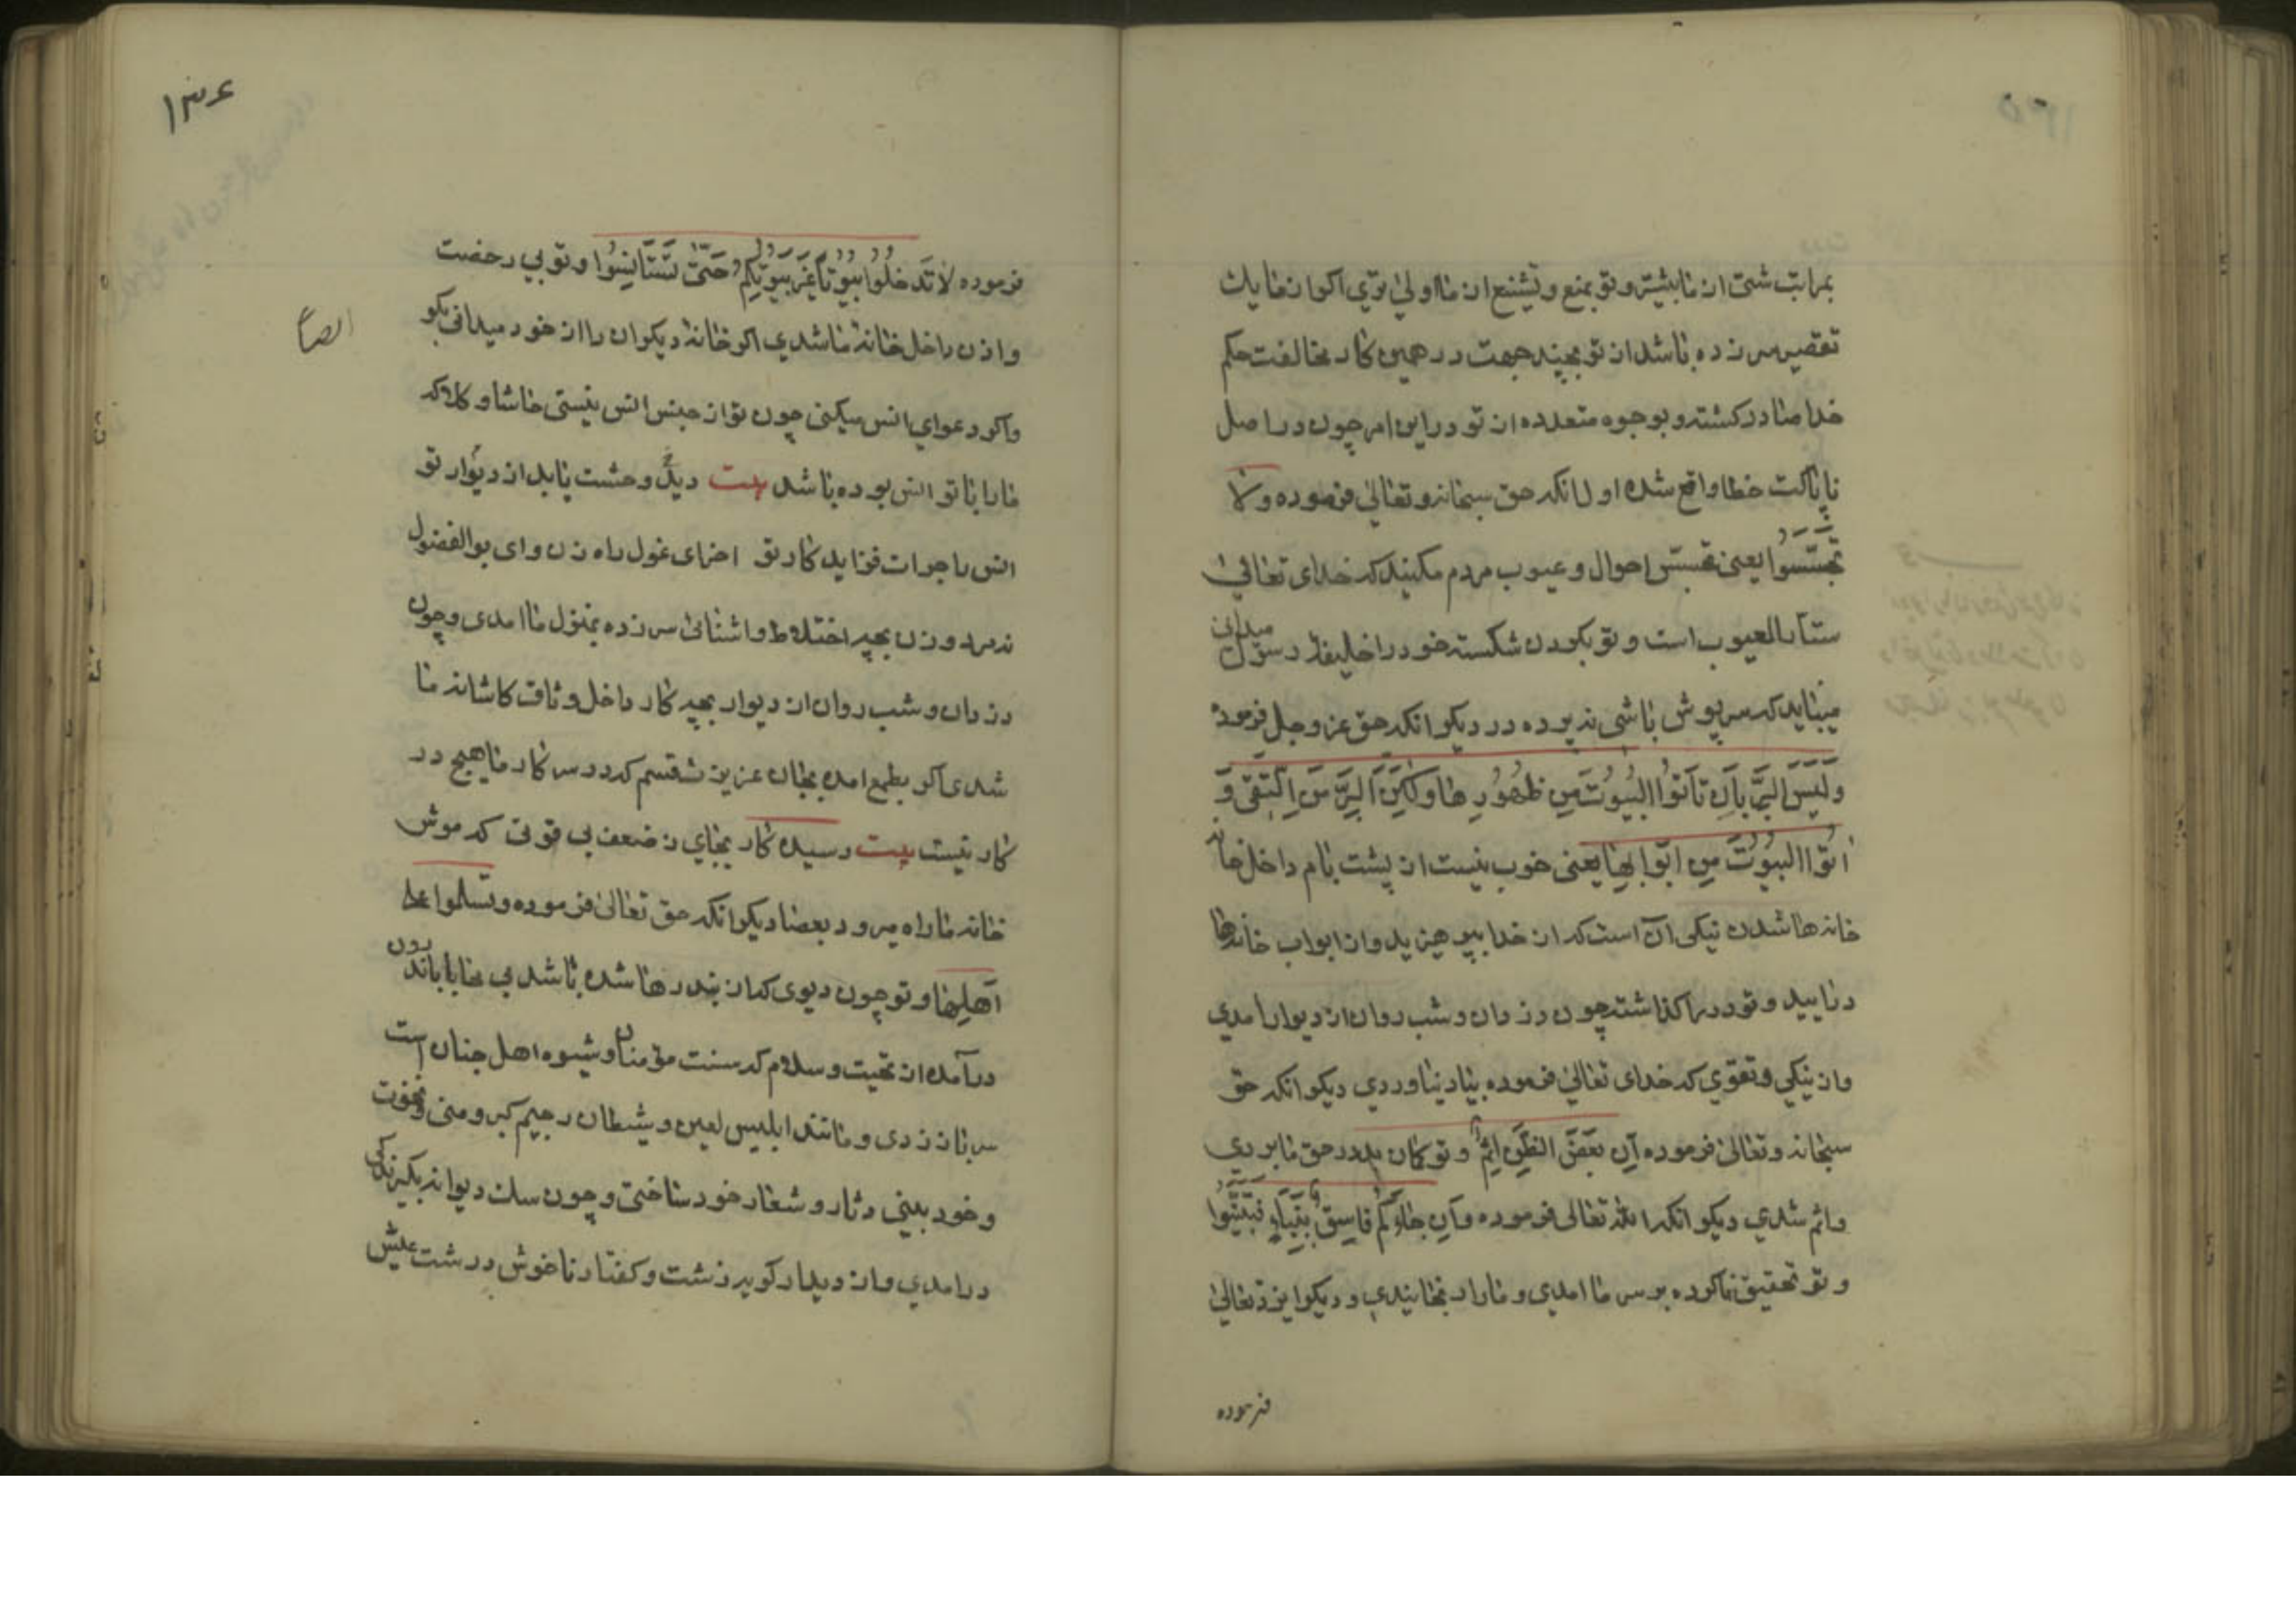 بمراتب شتی از ما بیشتر و تو بمنع و تشنیع از ما اولی تری اکر از ما یک
تقصیر سر زده باشد از تو بچند جهت در همین کار مخالفت حکم
خدا صادر کشته و بوجوه متعدده از تو در این امر چون در اصل
ناپاکت خطا واقع شده اول انکه حق سبحانه و تعالی فرموده ولا
تجسسوا یعنی تجسس احوال و عیوب مردم مکنید که خدای تعالی
ستار العیوب است و تو بکردن شکسته خود را خلیفه رسول میدانی
میباید که سرپوش باشی نه پرده در دیکر انکه حق عز و جل فرموده
وَلَیْسَ البِرَّ بِاَن تَاتُوا البُیُوتَ مِن ظُهُورِها وَلکِنَّ البِرَّ مَن اتَّقی وَ
اتُوا البُیُوتَ مِن اَبوابِها یعنی خوب نیست از پشت بام داخل خانه
خانه ها شدن نیکی آن است که از خدا بپرهیزید و از ابواب خانه‌ها
درایید و تو در را کذاشته چون دزدان و شب روان از دیوار امدی
و از نیکی و تقوی که خدای تعالی فرموده بیاد نیاوردی دیکر انکه حق
سبحانه و تعالی فرموده اِنَّ بَعْضَ الظَّنِّ اِثمٌ و تو کمان بد در حق ما بردی
واثم شدی دیکر انکه الله تعالی فرموده وَاِن جاءَکُم فاسِقٌ بِنَبَاءٍ فَتَبَیَّنُوا
و تو تحقیق ناکرده بر سر ما امدی و ما را رنجانیدی و دیکر ایزد تعالی
فرموده
۱۳۶
فرموده لا تَدخُلُوا بُیُوتاً غَیرَ بُیُوتِکُم حَتّی تَستَانِسُوا و تو بی رخصت
و اذن داخل خانه ما شدی اکر خانه دیکران را از خود میدانی بکو
واکر دعوای انس میکنی چون تو از جنس انس نیستی حاشا و کلا که
ما را با تو انس بوده باشد بیت دیو وحشت یابد از دیوار تو
انس را جرات فزاید کار تو اخر ای غول راه زن و ای بوالفضول
نه مرد و زن بچه اختلاط و اشنائی سر زده بمنزل ما امدی و چون
دزدان و شب روان از دیوار بچه کار داخل وثاق کاشانه ما
شدی اکر بطمع امده بجان عزیزت قسم که در سرکار ما هیچ در
کار نیست بیت رسیده کار بجای ز ضعف بی قوتی که موش
خانه ما راه میرود بعصا دیکر انکه حق تعالی فرموده وتسلموا علی
اَهلِها و تو چون دیوی که از بند رها شده باشد بی محابا باندرون
در آمده از تحیت و سلام که سنت مؤمنان و شیوه اهل جنان است
سر باز زدی و مانند ابلیس لعین و شیطان رجیم کبر و منی و نخوت
و خود بینی دثار و شعار خود ساختی و چون سک دیوانه
در امدی و از دیدار کریه زشت و کفتار ناخوش درشت عیش
ایضاً